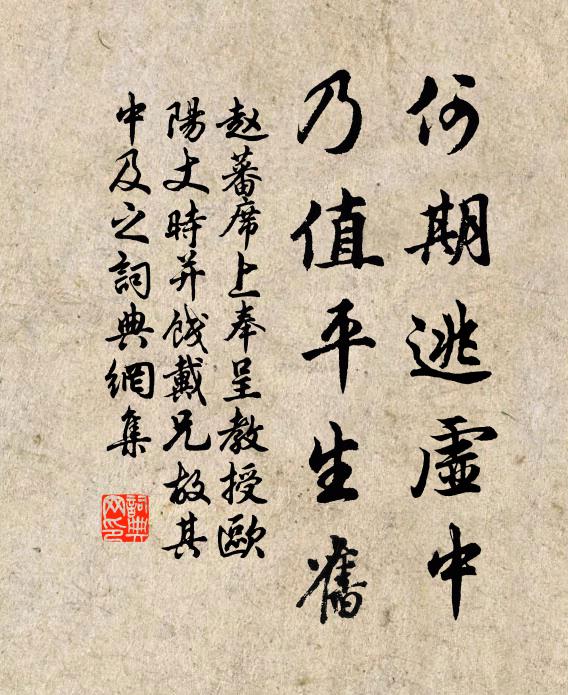 何期逃虛中
乃值平生舊
赵蕃席上奉呈教授歐
陽丈時并餞戴兄故其
中及之詞典網集
詞典
网印